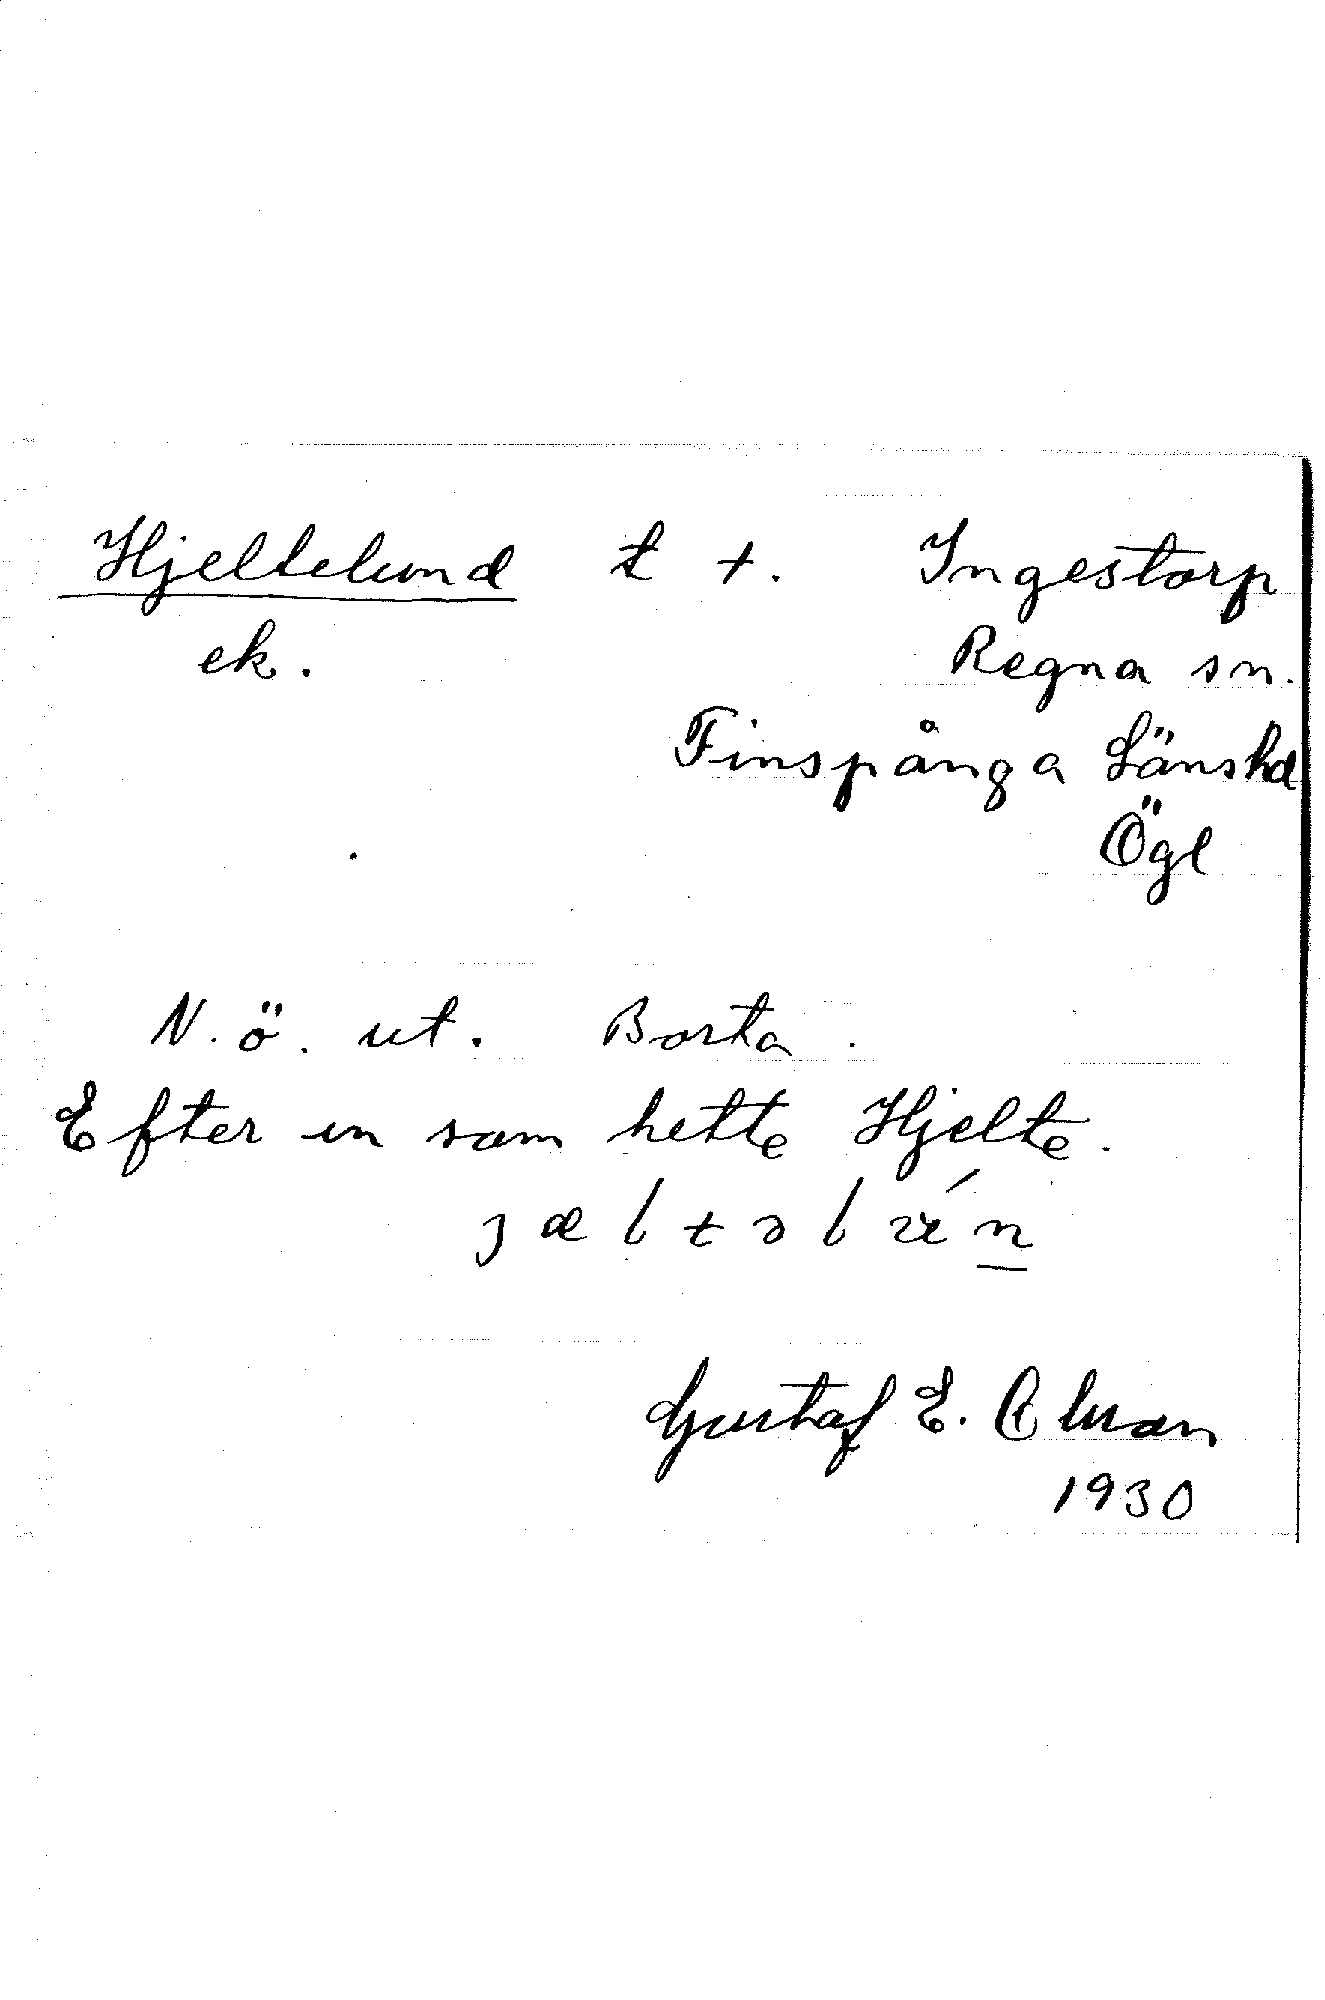 Hjeltelund t +. Ingestorp
ek. Regna sn.
Finspånga Länshd
Ögl
N.ö. ut. Borta.
Efter en som hette Hjelte.
Gustaf E.
1930